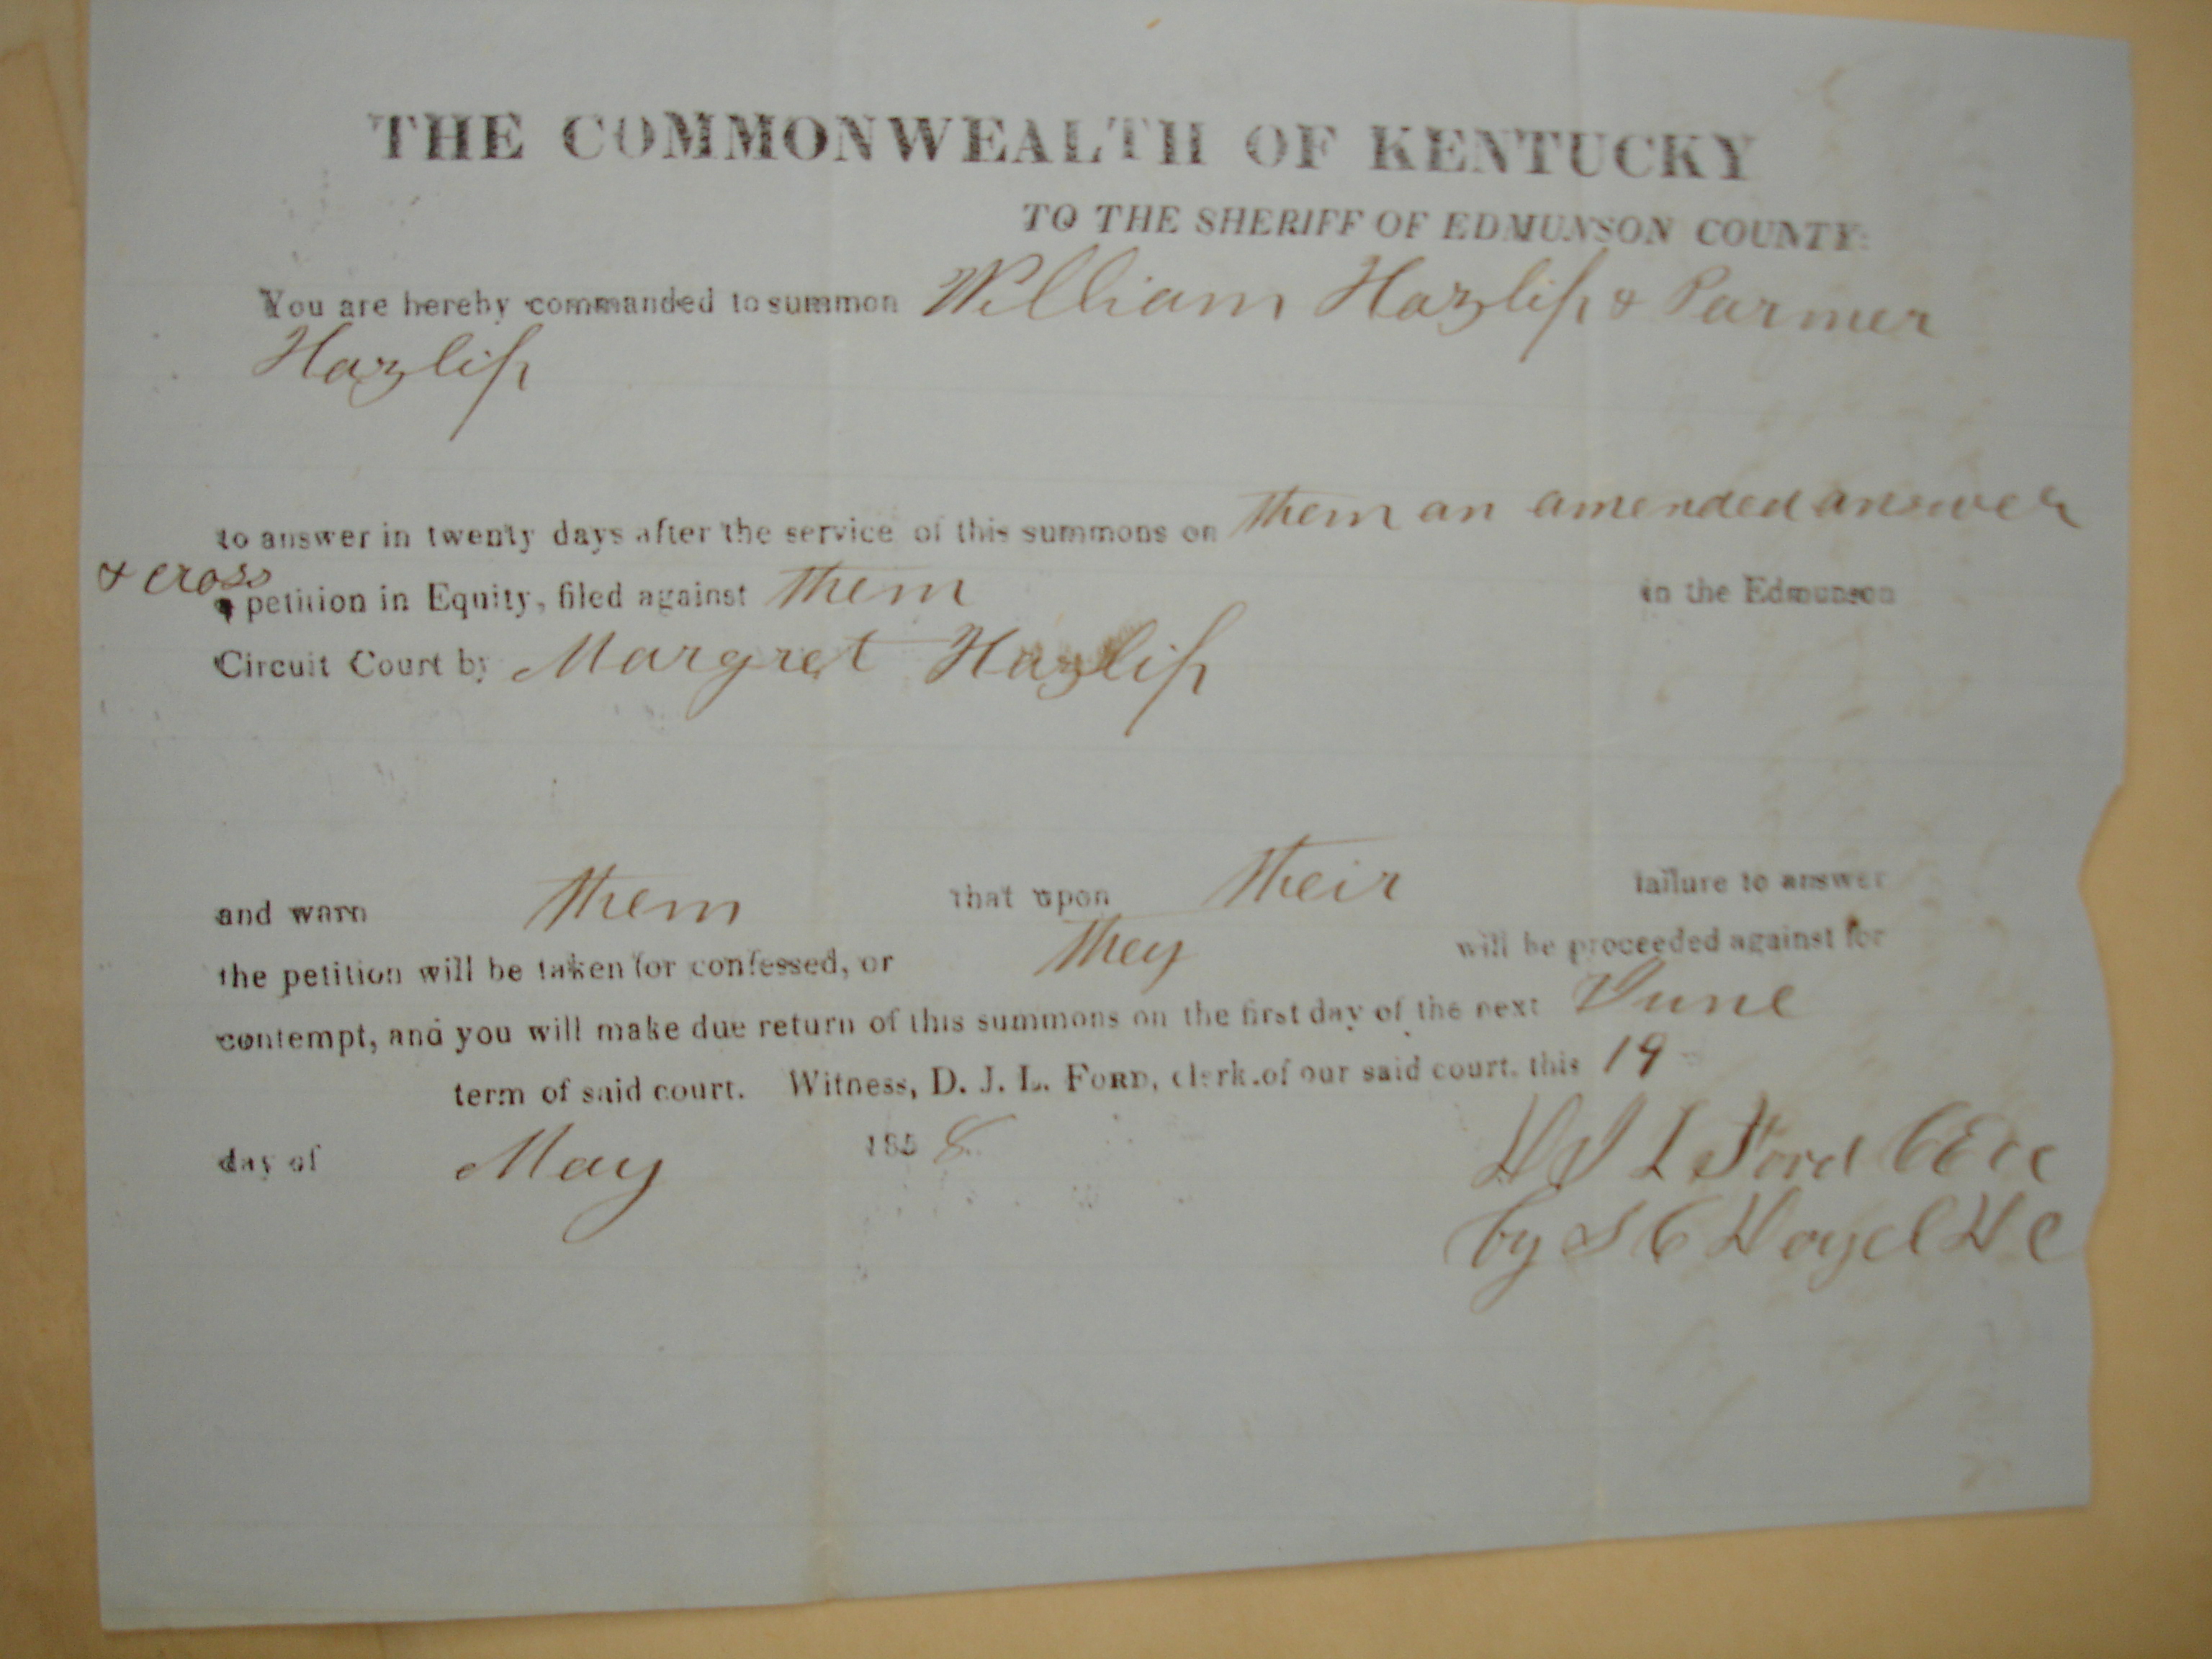 THE COMMONWEALTH OF KENTUCKY
TO THE SHERIFF OF EDMUNSON COUNTY:
You are hereby commanded to summon William Hazlip & Parmer
Hazlip
to answer in twenty days after the service of this summons on them an amended answer
& cross petition in Equity, filed against them in the Edmunson
Circuit Court by Margret Hazlip
and warn them that upon their failure to answer
the petition will be taken for confessed, or they will be proceeded against for
contempt, and you will make due return of this summons on the first day of the next June
term of said court. Witness, D. J. L. FORD, clerk of our said court, this 19
day of May 1858
D J L Ford
by S C